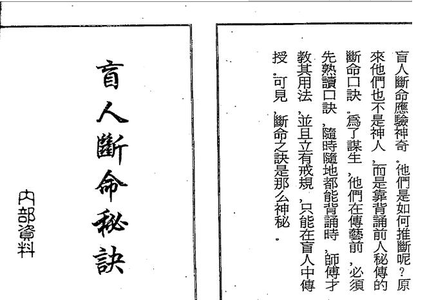 盲人斷命應驗神奇.他們是如何推斷呢?原
來他們也不是神人,而是靠背誦前人秘傳的
斷命口訣.爲了謀生,他們在傳藝前,必須
先熟讀口訣,隨時隨地都能背誦時,師傅才
教其用法,並且立有戒規,只能在盲人中傳
授.可見,斷命之訣是那么神秘.
盲人斷命秘訣
内部資料